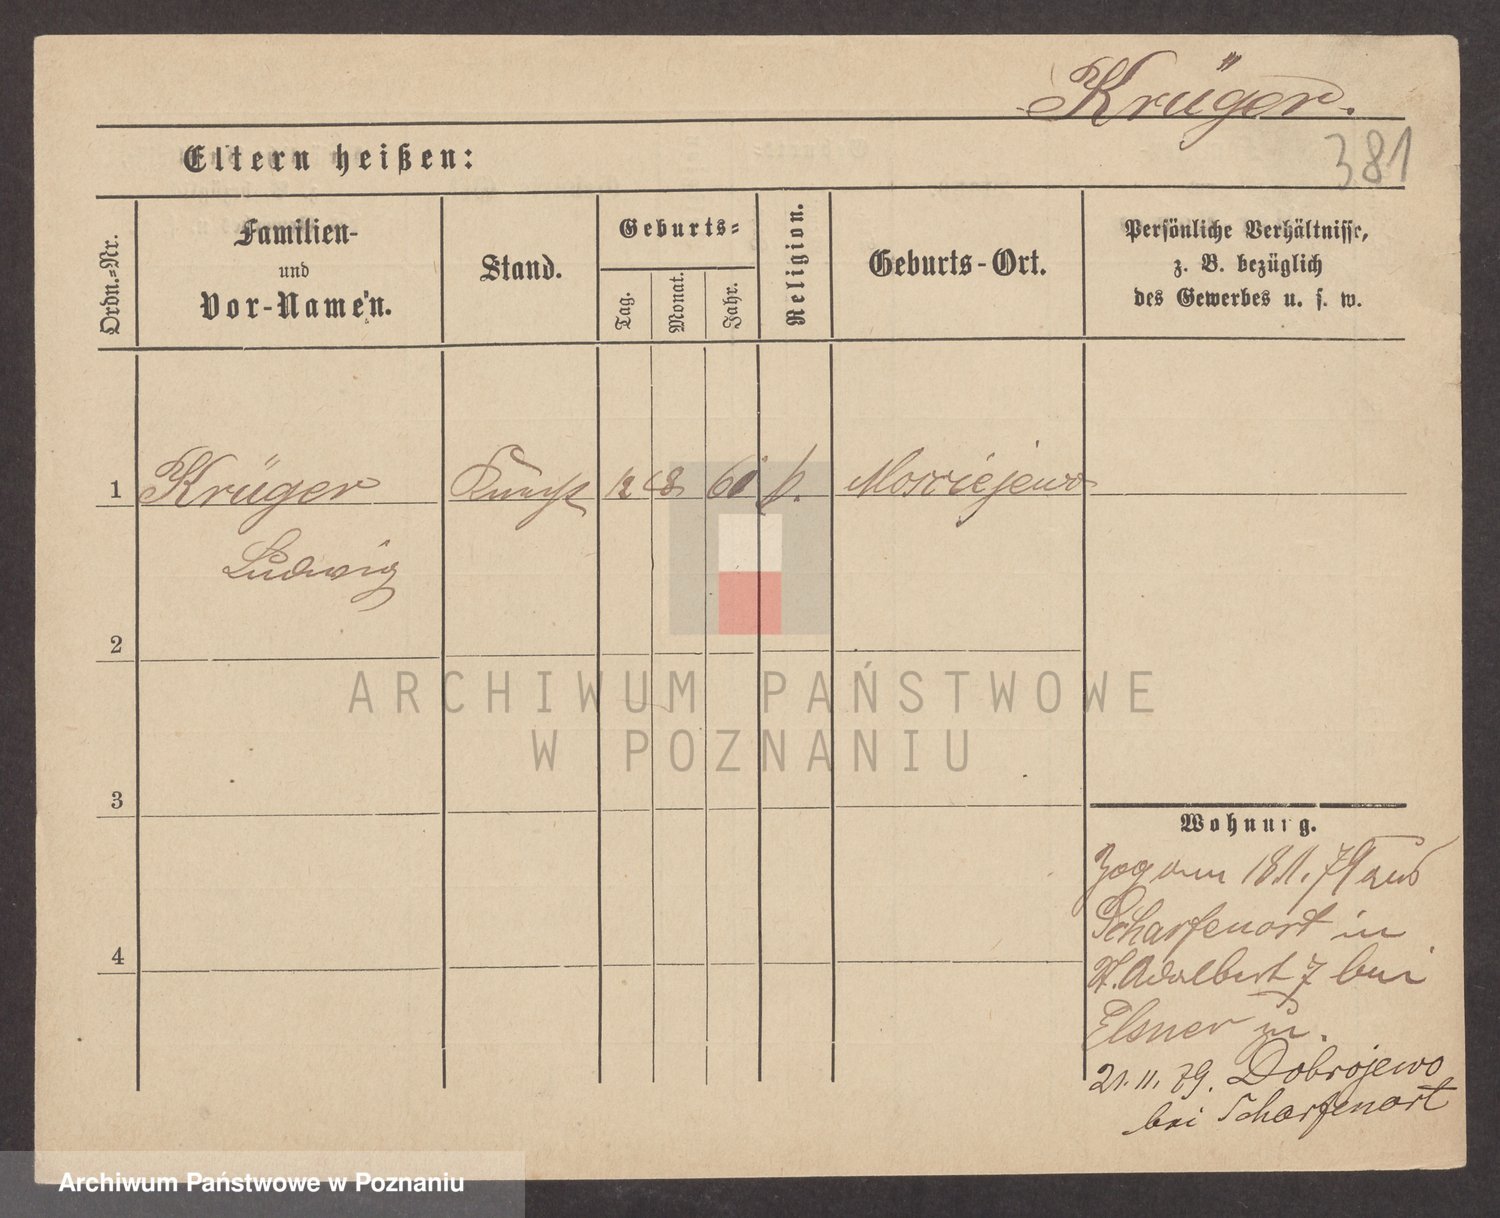 Krüger.
381
Eltern heißen:
Ordn.=Nr.
Familien-
und
Vor-Namen.
Stand.
Geburts=
Tag.
Monat.
Jahr.
Religion.
Geburts-Ort.
Persönliche Verhältnisse,
z. B. bezüglich
des Gewerbes u. s. w.
1 Krüger 12 8 60 k.
Ludwig
2
3
4
Wohnung.
Zog am 18.1.79 aus
Scharfenort in
St. Adalbert 7 bei
Elsner
21.11.79. Dobrojewo
bei Scharfenort
ARCHIWUM PAŃSTWOWE
W POZNANIU
Archiwum Państwowe w Poznaniu